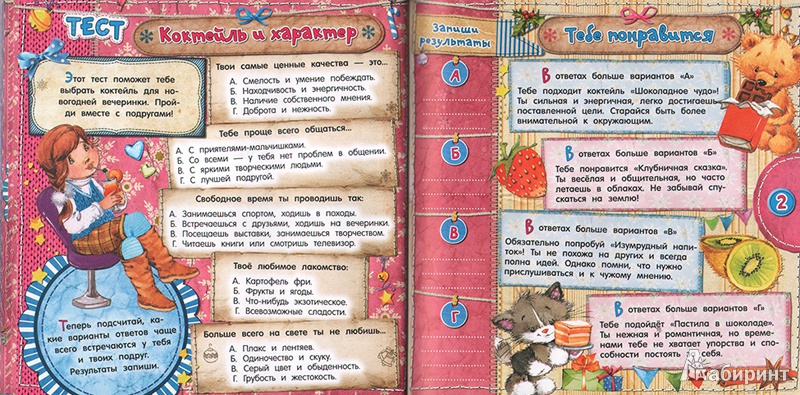 ТЕСТ
Коктейль и характер
Этот тест поможет тебе
выбрать коктейль для но-
вогодней вечеринки. Прой-
ди вместе с подругами!
Твои самые ценные качества — это...
А. Смелость и умение побеждать.
Б. Находчивость и энергичность.
В. Наличие собственного мнения.
Г. Доброта и нежность.
Тебе проще всего общаться...
А. С приятелями-мальчишками.
Б. Со всеми — у тебя нет проблем в общении.
В. С яркими творческими людьми.
Г. С лучшей подругой.
Свободное время ты проводишь так:
А. Занимаешься спортом, ходишь в походы.
Б. Встречаешься с друзьями, ходишь на вечеринки.
В. Посещаешь выставки, занимаешься творчеством.
Г. Читаешь книги или смотришь телевизор.
Твоё любимое лакомство:
А. Картофель фри.
Б. Фрукты и ягоды.
В. Что-нибудь экзотическое.
Г. Всевозможные сладости.
Больше всего на свете ты не любишь...
А. Плакс и лентяев.
Б. Одиночество и скуку.
В. Серый цвет и обыденность.
Г. Грубость и жестокость.
Теперь подсчитай, ка-
кие варианты ответов чаще
всего встречаются у тебя
и твоих подруг.
Результаты запиши.
Запиши
результаты
А
Б
В
Г
Тебе понравится
В ответах больше вариантов «А»
Тебе подходит коктейль «Шоколадное чудо»!
Ты сильная и энергичная, легко достигаешь
поставленной цели. Старайся быть более
внимательной к окружающим.
В ответах больше вариантов «Б»
Тебе понравится «Клубничная сказка».
Ты весёлая и общительная, но часто
летаешь в облаках. Не забывай спу-
скаться на землю!
2
В ответах больше вариантов «В»
Обязательно попробуй «Изумрудный напи-
ток»! Ты не похожа на других и всегда
полна идей. Однако помни, что нужно
прислушиваться и к чужому мнению.
В ответах больше вариантов «Г»
Тебе подойдёт «Пастила в шоколаде».
Ты нежная и романтичная, но вре-
менами тебе не хватает упорства и спо-
собности постоять за себя.
Лабиринт